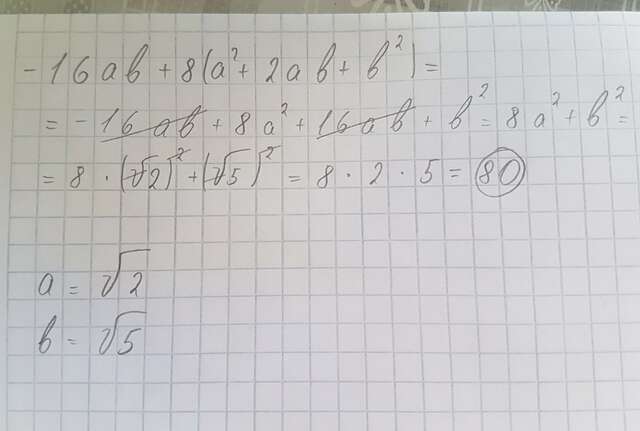 -16ab + 8(a² + 2ab + b²) =
= -16ab + 8a² + 16ab + b² = 8a² + b² =
= 8 · (√2)² + (√5)² = 8 · 2 · 5 = 80
a = √2
b = √5